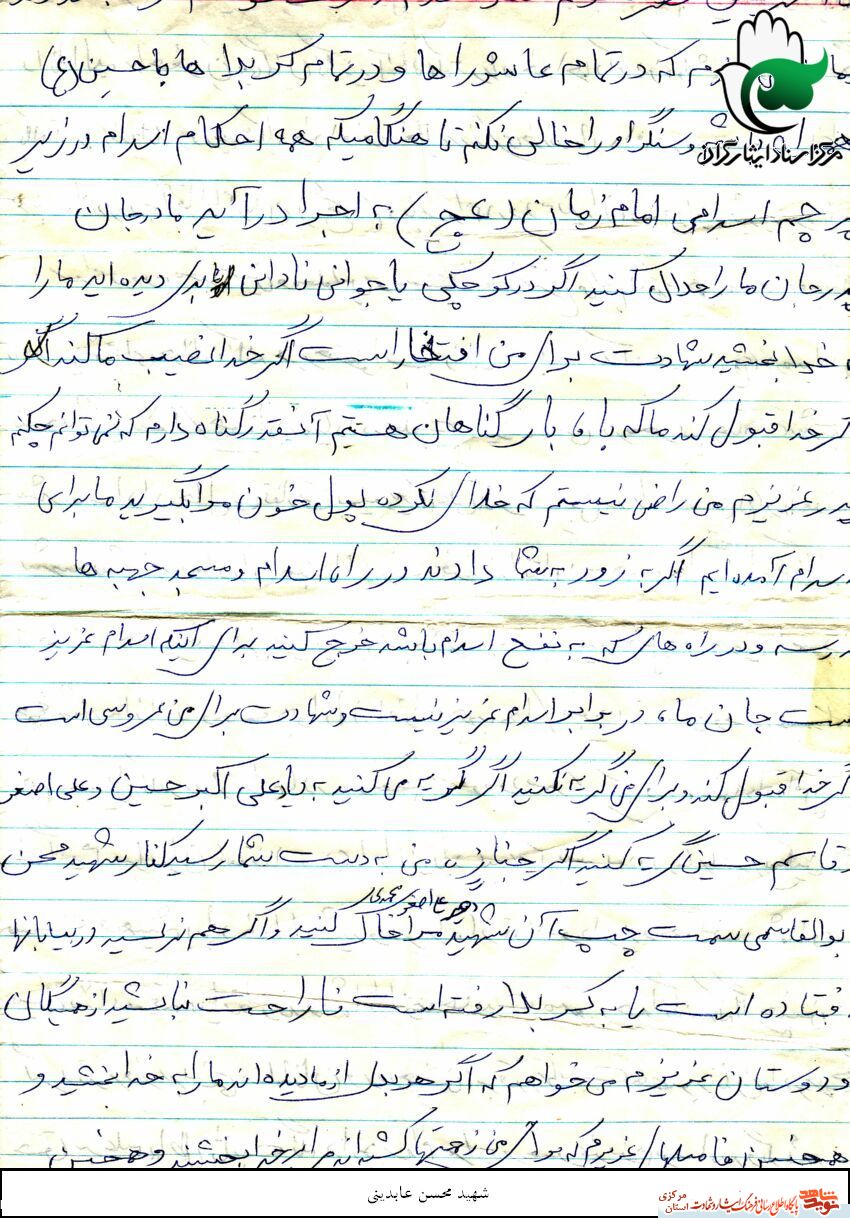 که در تمام عاشوراها و در تمام کربلا ها با حسین (ع)
و سنگر او را خالی نکنم تا هنگامیکه همه احکام اسلام در زیر
مرکز اسناد ایثارگران
پرچم اسلامی امام زمان (عج) به اجرا در آید مادر جان
پدر جان ما را حلال کنید اگر در کوچکی یا جوانی نادانی بدی دیده اید ما را
خدا بخشید شهادت برای من افتخار است اگر خدا نصیب ما کند اگر
گر خدا قبول کند ما که با بار گناهان هستیم آنقدر گناه دارم که نمی توانم چکنم
پدر عزیزم من راضی نیستم که خدای نکرده پول خون مرا بگیرید ما برای
اسلام آمده ایم اگر به زور به شما دادند در راه اسلام و مسجد جبهه ها
درسه و در راه های که به نفع اسلام باشد خرج کنید برای اینکه اسلام عزیز
ست جان ما، در برابر اسلام عزیز نیست و شهادت برای من عروسی است
گر خدا قبول کند و برای من گریه نکنید اگر گریه می کنید به یاد علی اکبر حسین و علی اصغر
و قاسم حسین گریه کنید اگر جنازه من به دست شما رسید کنار شهید محسن
بوالقاسمی سمت چپ آن شهید مرا خاک کنید و اگر هم نرسید در بیابانها
فتاده است یا به کربلا رفته است ناراحت نباشید از همگان
و دوستان عزیزم می خواهم که اگر هر بدی از ما دیده اند ما را به خدا بخشید و
همچنین فامیلهای عزیزم که برای من زحمتها کشیده اند مرا به خدا بخشند و همچنین
شهید محسن عابدینی
نوید شاهد
پایگاه اطلاع رسانی فرهنگ ایثار و شهادت استان مرکزی